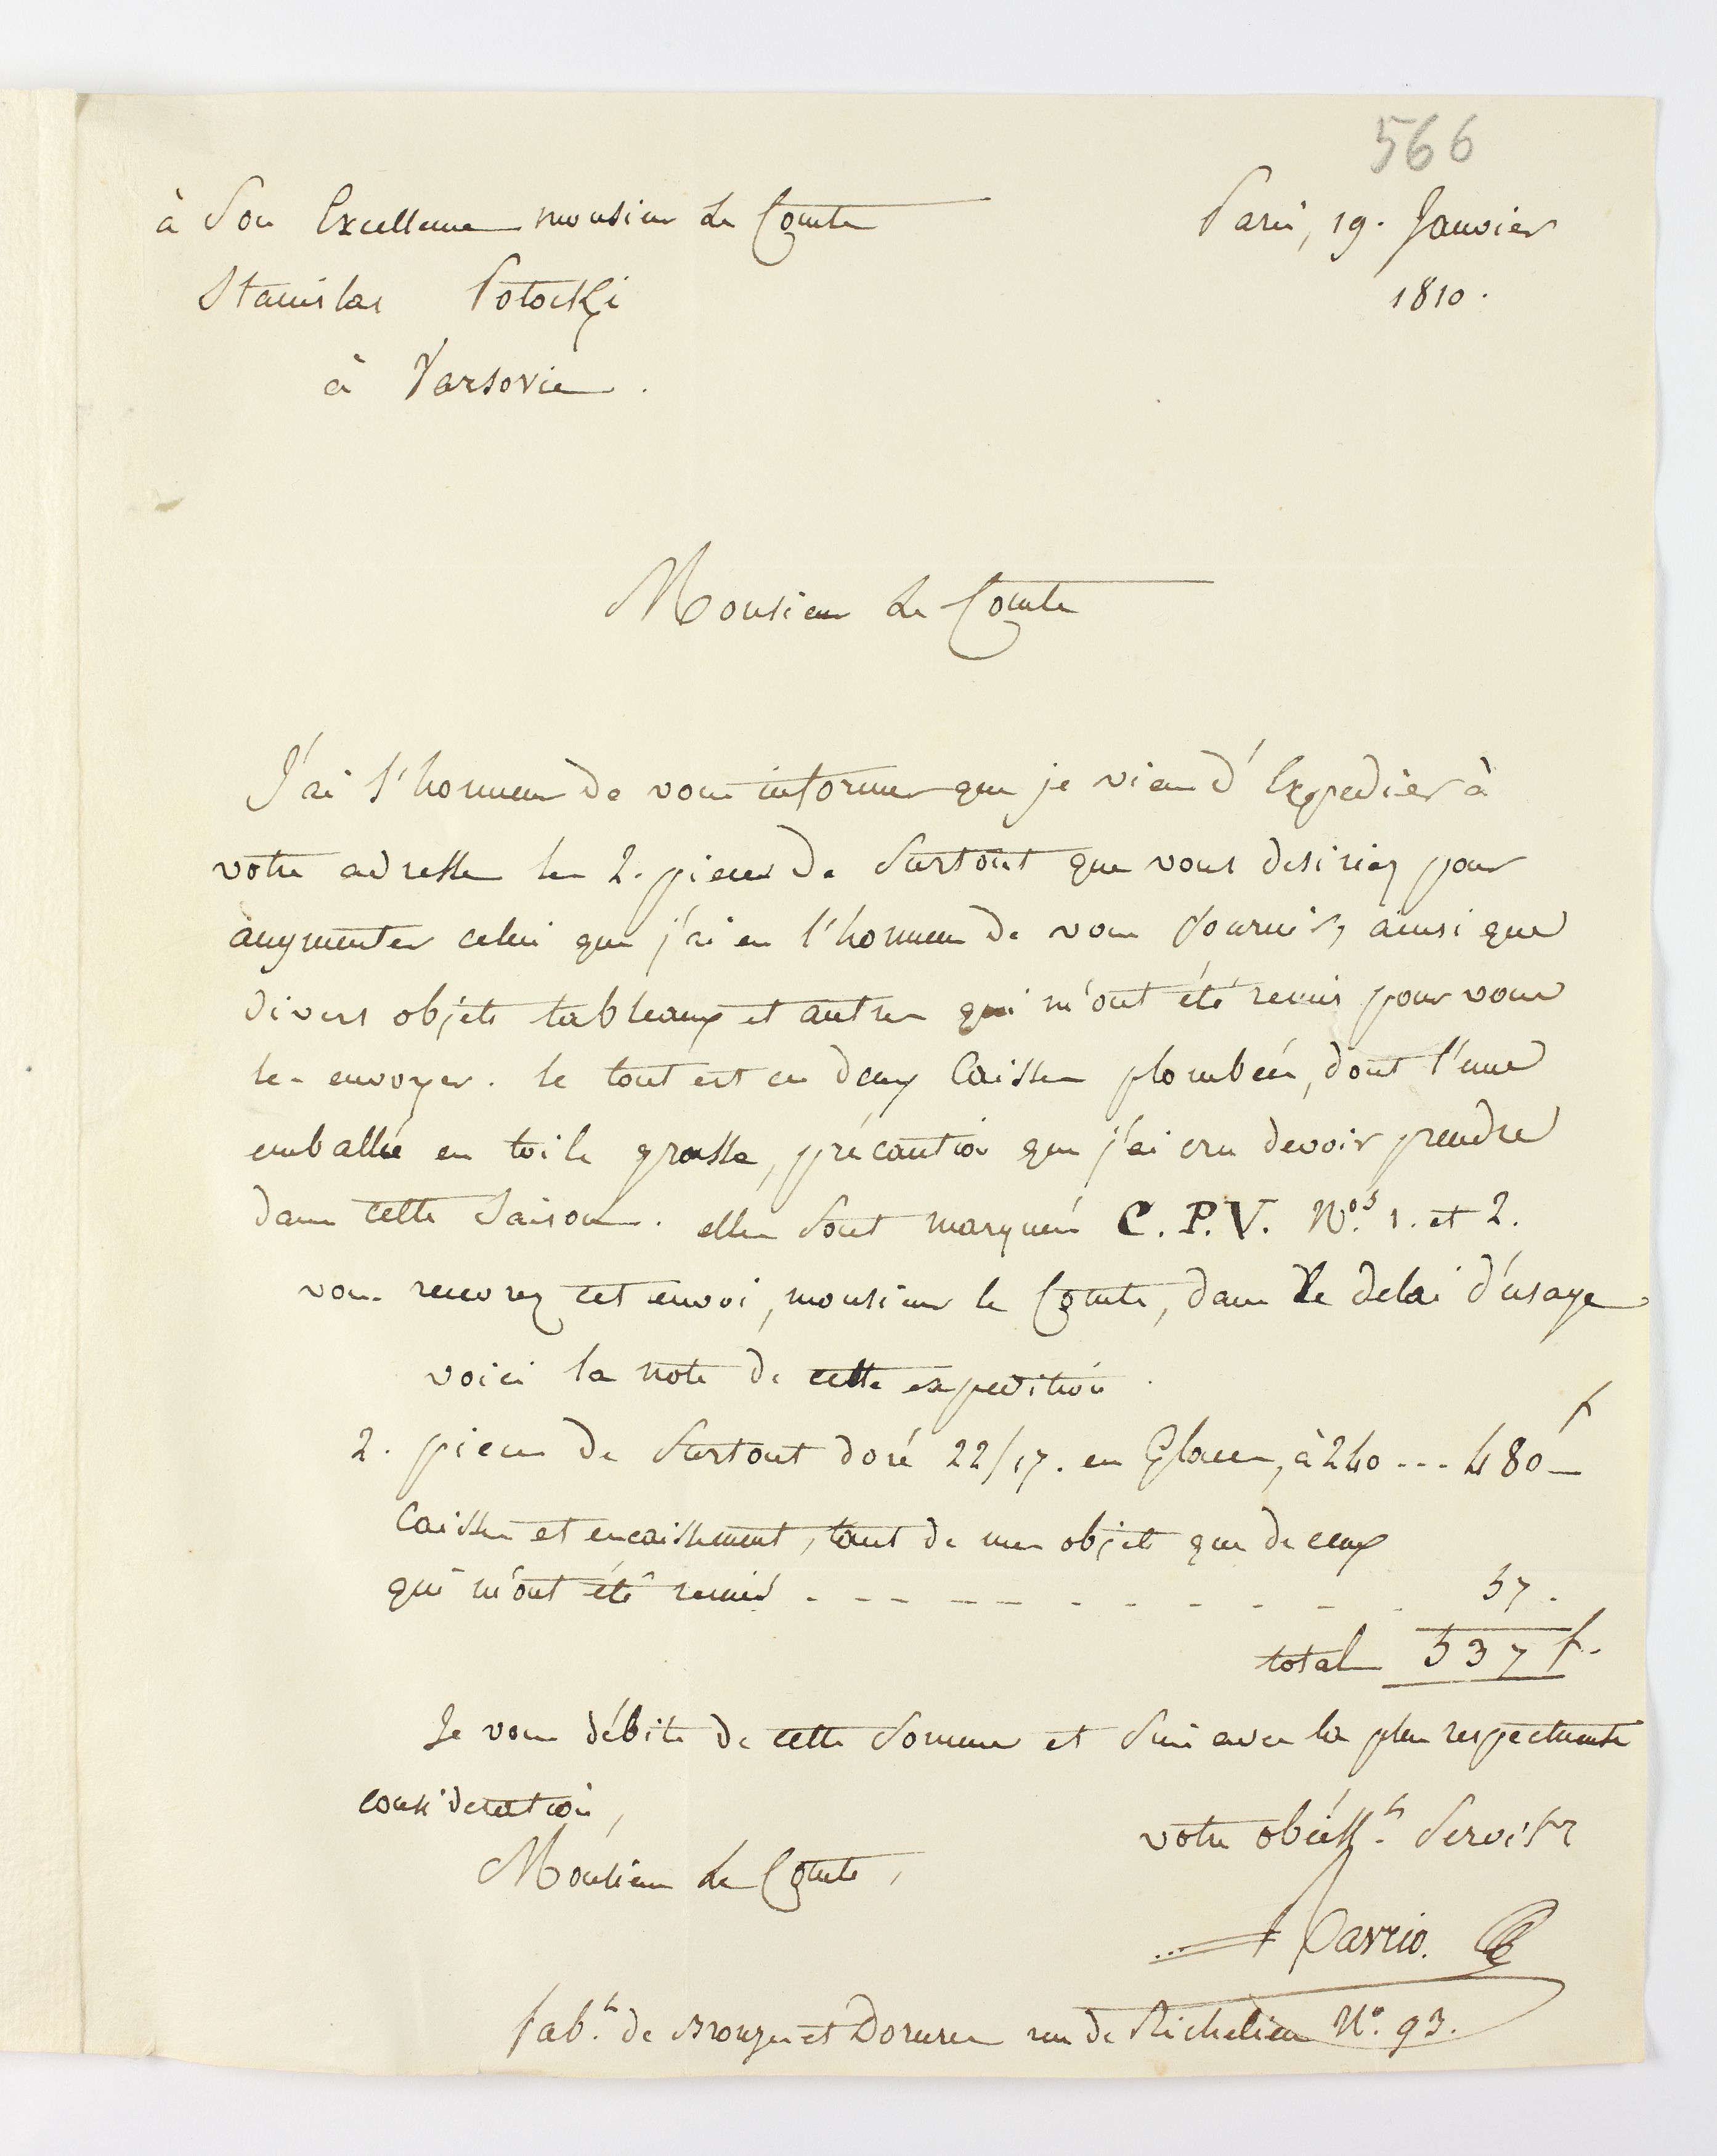 566
à Son Excellence monsieur Le Comte
Paris, 19. Janvier
Stanislas Potocki
1810.
à Varsovie.
Monsieur Le Comte
J'ai l'honneur de vous informer que je viens d'Expedier à
votre adresse les 2. pieces de Surtout que vous desiriez pour
augmenter celui que j'ai eu l'honneur de vous fournir, ainsi que
divers objets tableaux et autres qui m'ont été remis pour vous
les envoyer. le tout est en deux Caisses plombées, dont l'une
emballée en toile grasse, précaution que j'ai cru devoir prendre
dans cette Saison. elles Sont marquées C. P. V. Nos. 1. et 2.
vous recevrez cet envoi, monsieur le Comte, dans le delai d'usage
voici la note de cette expedition
2. pieces de Surtout doré 22/17. en Glaces, à 240 --- 480 f
Caisses et encaissement, tant de mes objets que de ceux
qui m'ont été remis - - - - - - - - - - - 57.
total 537 f.
Je vous débite de cette Somme et Suis avec la plus respectueuse
considération,
votre obéisst. Servitr
Monsieur Le Comte,
Ravrio.
fabt. de Bronzes et Dorures rue de Richelieu No. 93.